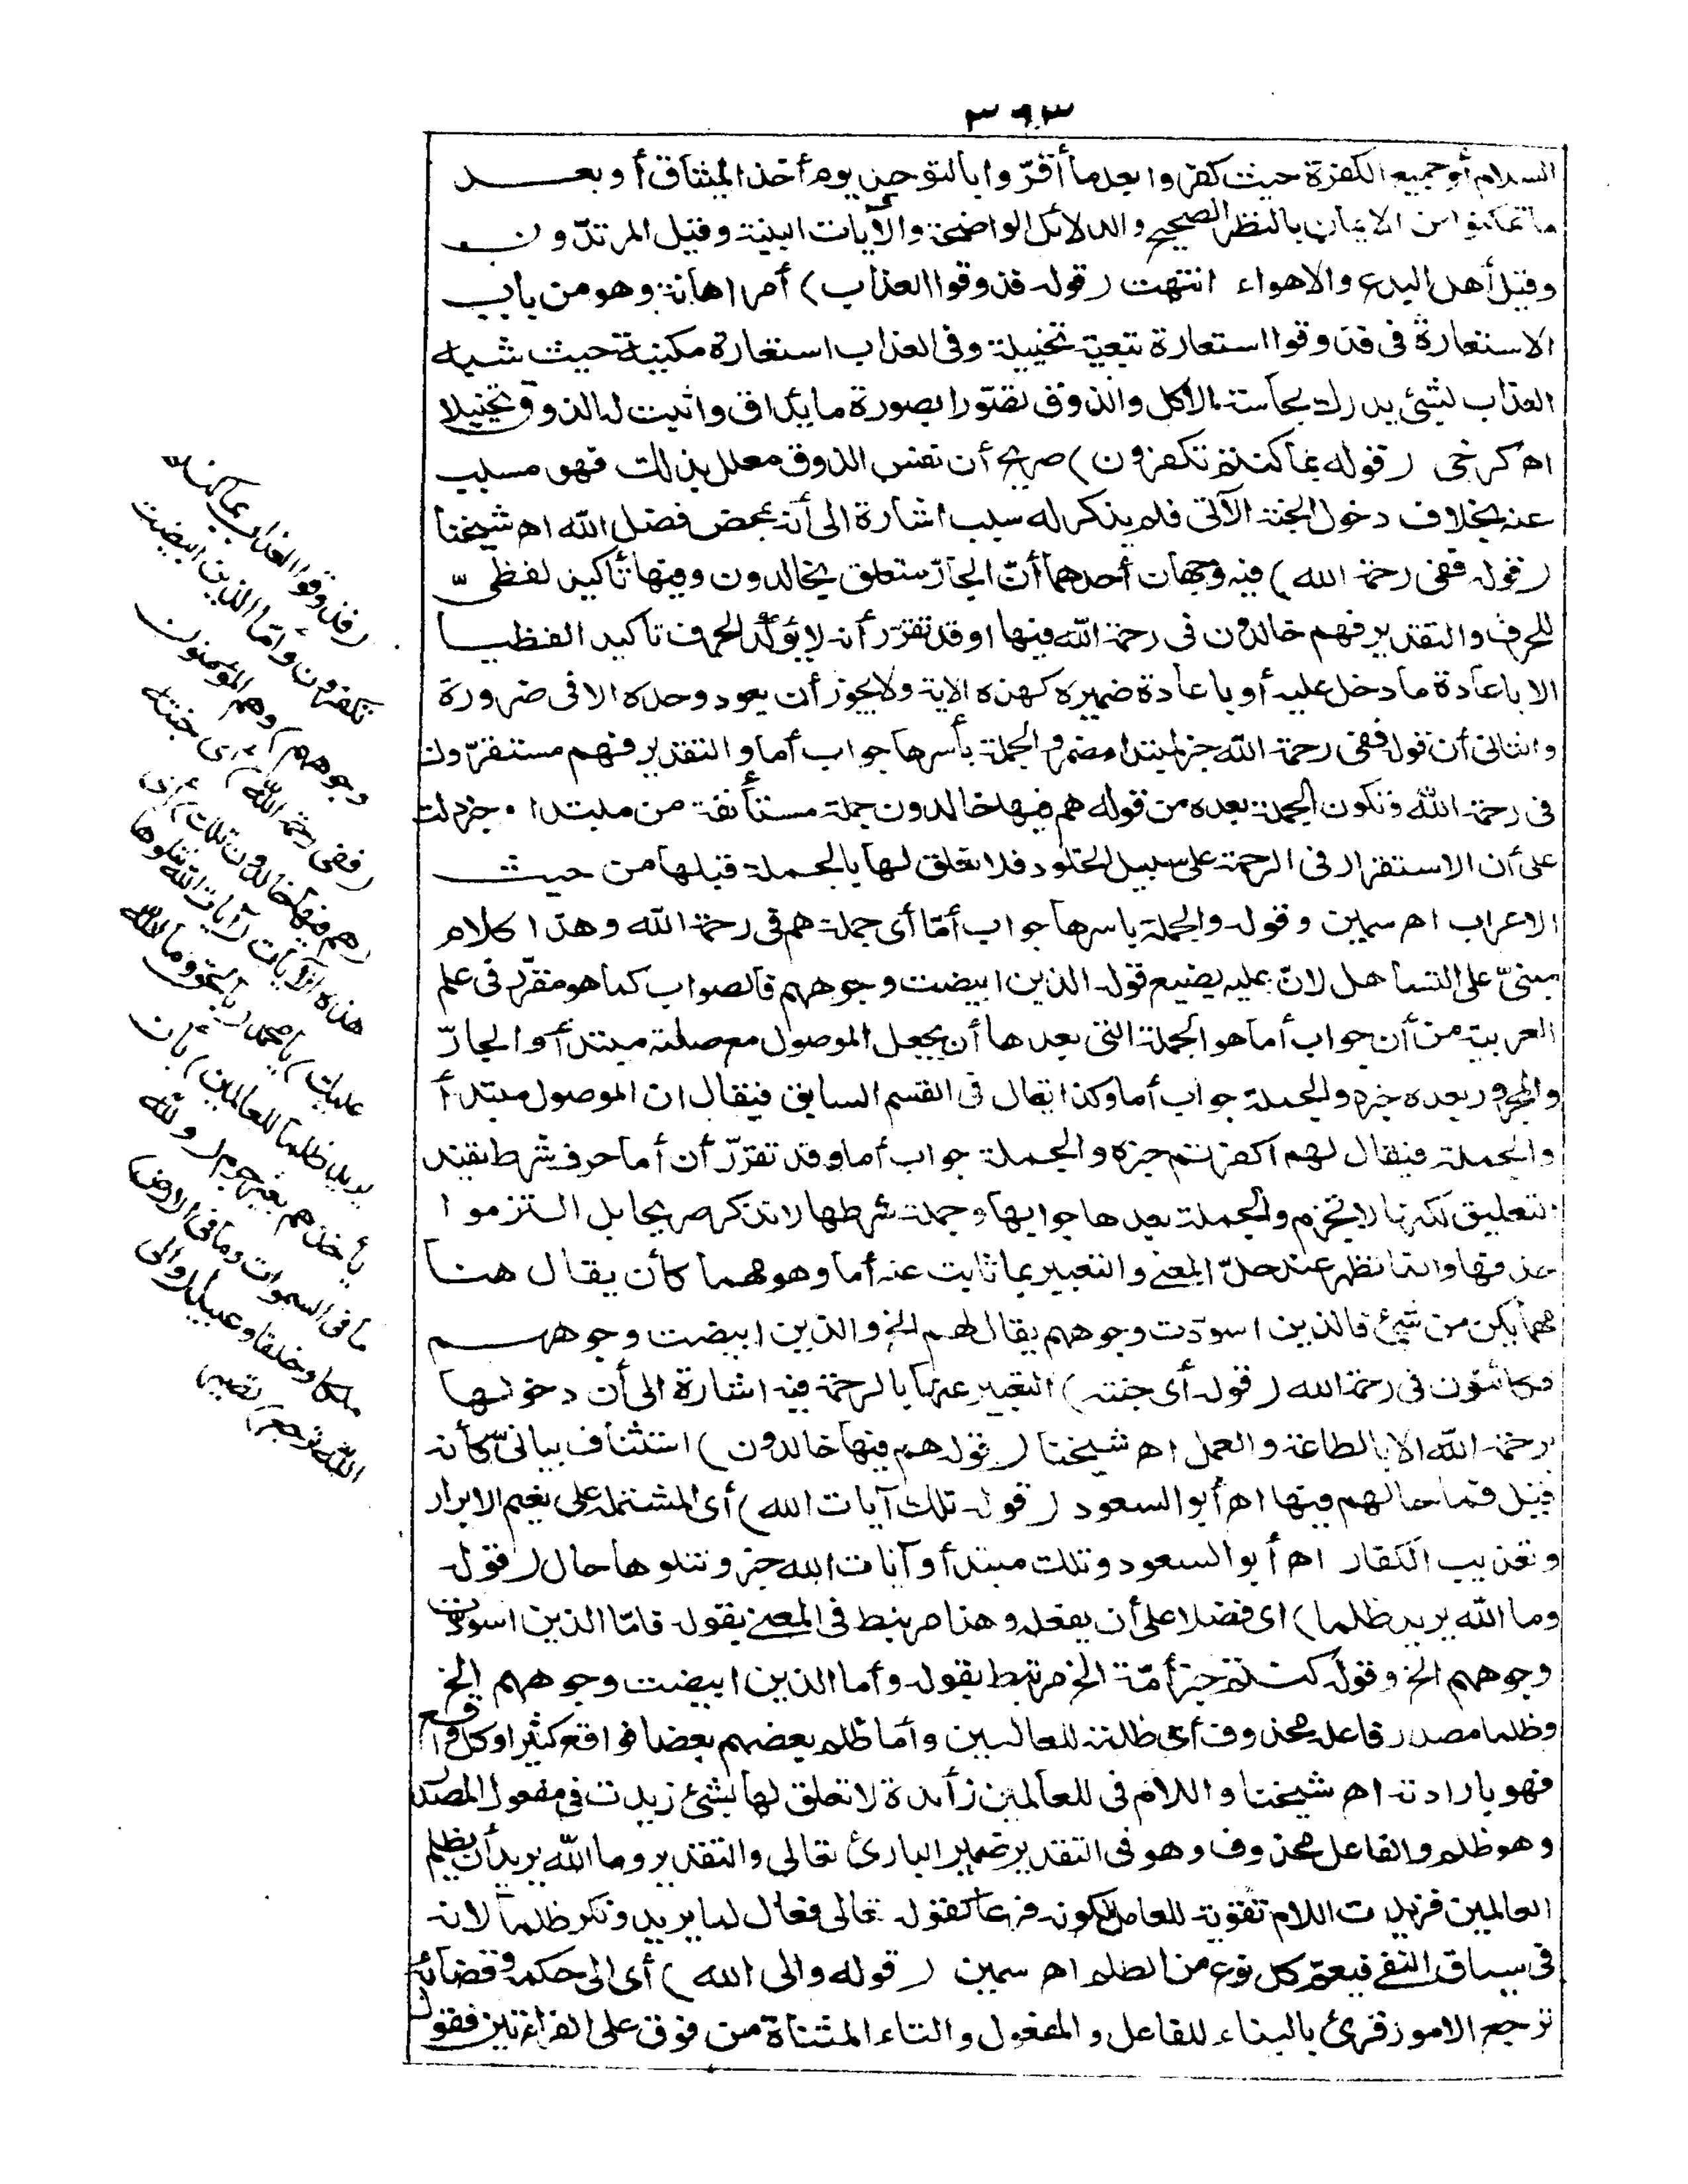 ٣٩٣
السلام أو جميع الكفرة حيث كفروا بعد ما أقرّوا بالتوحيد يوم أخذ الميثاق أو بعد
ما تمكنوا من الايمان بالنظر الصحيح والدلائل الواضحة والآيات البينة وقيل المرتدّون
وقيل أهل البدع والاهواء انتهت (قوله فذوقوا العذاب) أمر اهانة وهو من باب
الاستعارة فى فذوقوا استعارة تبعية تخييلية وفى العذاب استعارة مكنية حيث شبه
العذاب بشئ يدرك بحاسة الاكل والذوق تصوّرا بصورة ما يذاق واثبت له الذوق تخييلا
اه كرخى (قوله بما كنتم تكفرون) صريح أن نفس الذوق معلل بذلك فهو مسبب
عنه بخلاف دخول الجنة الآتى فلم يذكر له سبب اشارة الى أنه بمحض فضل الله اه شيخنا
(قوله ففى رحمة الله) فيه وجهان أحدهما أنّ الجارّ متعلق بخالدون وفيها تأكيد لفظىّ
للحرف والتقدير فهم خالدون فى رحمة الله فيها وقد تقرّر أنه لا يؤكّد الحرف تاكيد الفظيا
الا باعادة ما دخل عليه أو باعادة ضميره كهذه الاية ولا يجوز أن يعود وحده الا فى ضرورة
والثانى أن قوله ففى رحمة الله خبر لمبتدا مضمر والجملة بأسرها جواب أما والتقدير فهم مستقرّون
فى رحمة الله وتكون الجملة بعده من قوله هم فيها خالدون جملة مستأنفة من مبتدا وخبر دلت
على أن الاستقرار فى الرحمة على سبيل الخلود فلا تعلق لها بالجملة قبلها من حيث
الاعراب اه سمين وقوله والجملة باسرها جواب أمّا أى جملة هم فى رحمة الله وهذا كلام
مبنىّ على التساهل لانّ عليه يضيع قوله الذين ابيضت وجوههم فالصواب كما هو مقرّر فى علم
العربية من أن جواب أما هو الجملة التى بعدها أن يجعل الموصول مع صلته مبتدأ والجارّ
والمجرور بعده خبره والجملة جواب أما وكذا يقال فى القسم السابق فيقال ان الموصول مبتدأ
والجملة فيقال لهم أكفرتم خبره والجملة جواب أما وقد تقرّر أن أما حرف شرط يفيد
التعليق لكنها لا تجزم والجملة بعدها جوابها وجملة شرطها لا تذكر صريحا بل التزموا
حذفها وانما تظهر عند حلّ المعنى والتعبير بما نابت عنه أما وهو مهما كأن يقال هنا
مهما يكن من شئ فالذين اسودّت وجوههم يقال لهم الخ والذين ابيضت وجوههم
فكائنون فى رحمة الله (قوله أى جنته) التعبير عنها بالرحمة فيه اشارة الى أن دخولها
برحمة الله الا بالطاعة والعمل اه شيخنا (قوله هم فيها خالدون) استئناف بيانىّ كأنه
قيل فما حالهم فيها اه أبو السعود (قوله تلك آيات الله) أى المشتملة على نعيم الابرار
وتعذيب الكفار اه أبو السعود وتلك مبتدأ وآيات الله خبر ونتلوها حال (قوله
وما الله يريد ظلما) اى فضلا على أن يفعله وهذا مرتبط فى المعنى بقوله فامّا الذين اسودّت
وجوههم الخ وقوله كنتم خير أمّة الخ مرتبط بقوله وأما الذين ابيضت وجوههم الخ
وظلما مصدر فاعله محذوف أى ظلمة للعالمين وأما ظلم بعضهم بعضا فواقع كثيرا وكل واقع
فهو بارادته اه شيخنا واللام فى للعالمين زائدة لا تعلق لها بشئ زيدت فى مفعول المصدر
وهو ظلم والفاعل محذوف وهو فى التقدير ضمير البارئ تعالى والتقدير وما الله يريد أن يظلم
العالمين فزيدت اللام تقوية للعامل لكونه فرعا كقوله تعالى فعال لما يريد ونكر ظلما لانه
فى سياق النفى فيعمّ كل نوع من الظلم اه سمين (قوله والى الله) أى الى حكمه وقضائه
ترجع الامور قرئ بالبناء للفاعل والمفعول والتاء المثناة من فوق على القراءتين فقوله
(فذوقوا العذاب بما كنتم
تكفرون وامّا الذين ابيضت
وجوههم) وهم المؤمنون
(ففى رحمة الله) اى جنته
(هم فيها خالدون تلك) أى
هذه الآيات (آيات الله نتلوها
عليك) يا محمد (بالحق وما الله
يريد ظلما للعالمين) بأن
يأخذهم بغير جرم (ولله
ما فى السموات وما فى الارض)
ملكا وخلقا وعبيدا (والى
الله ترجع) تصير